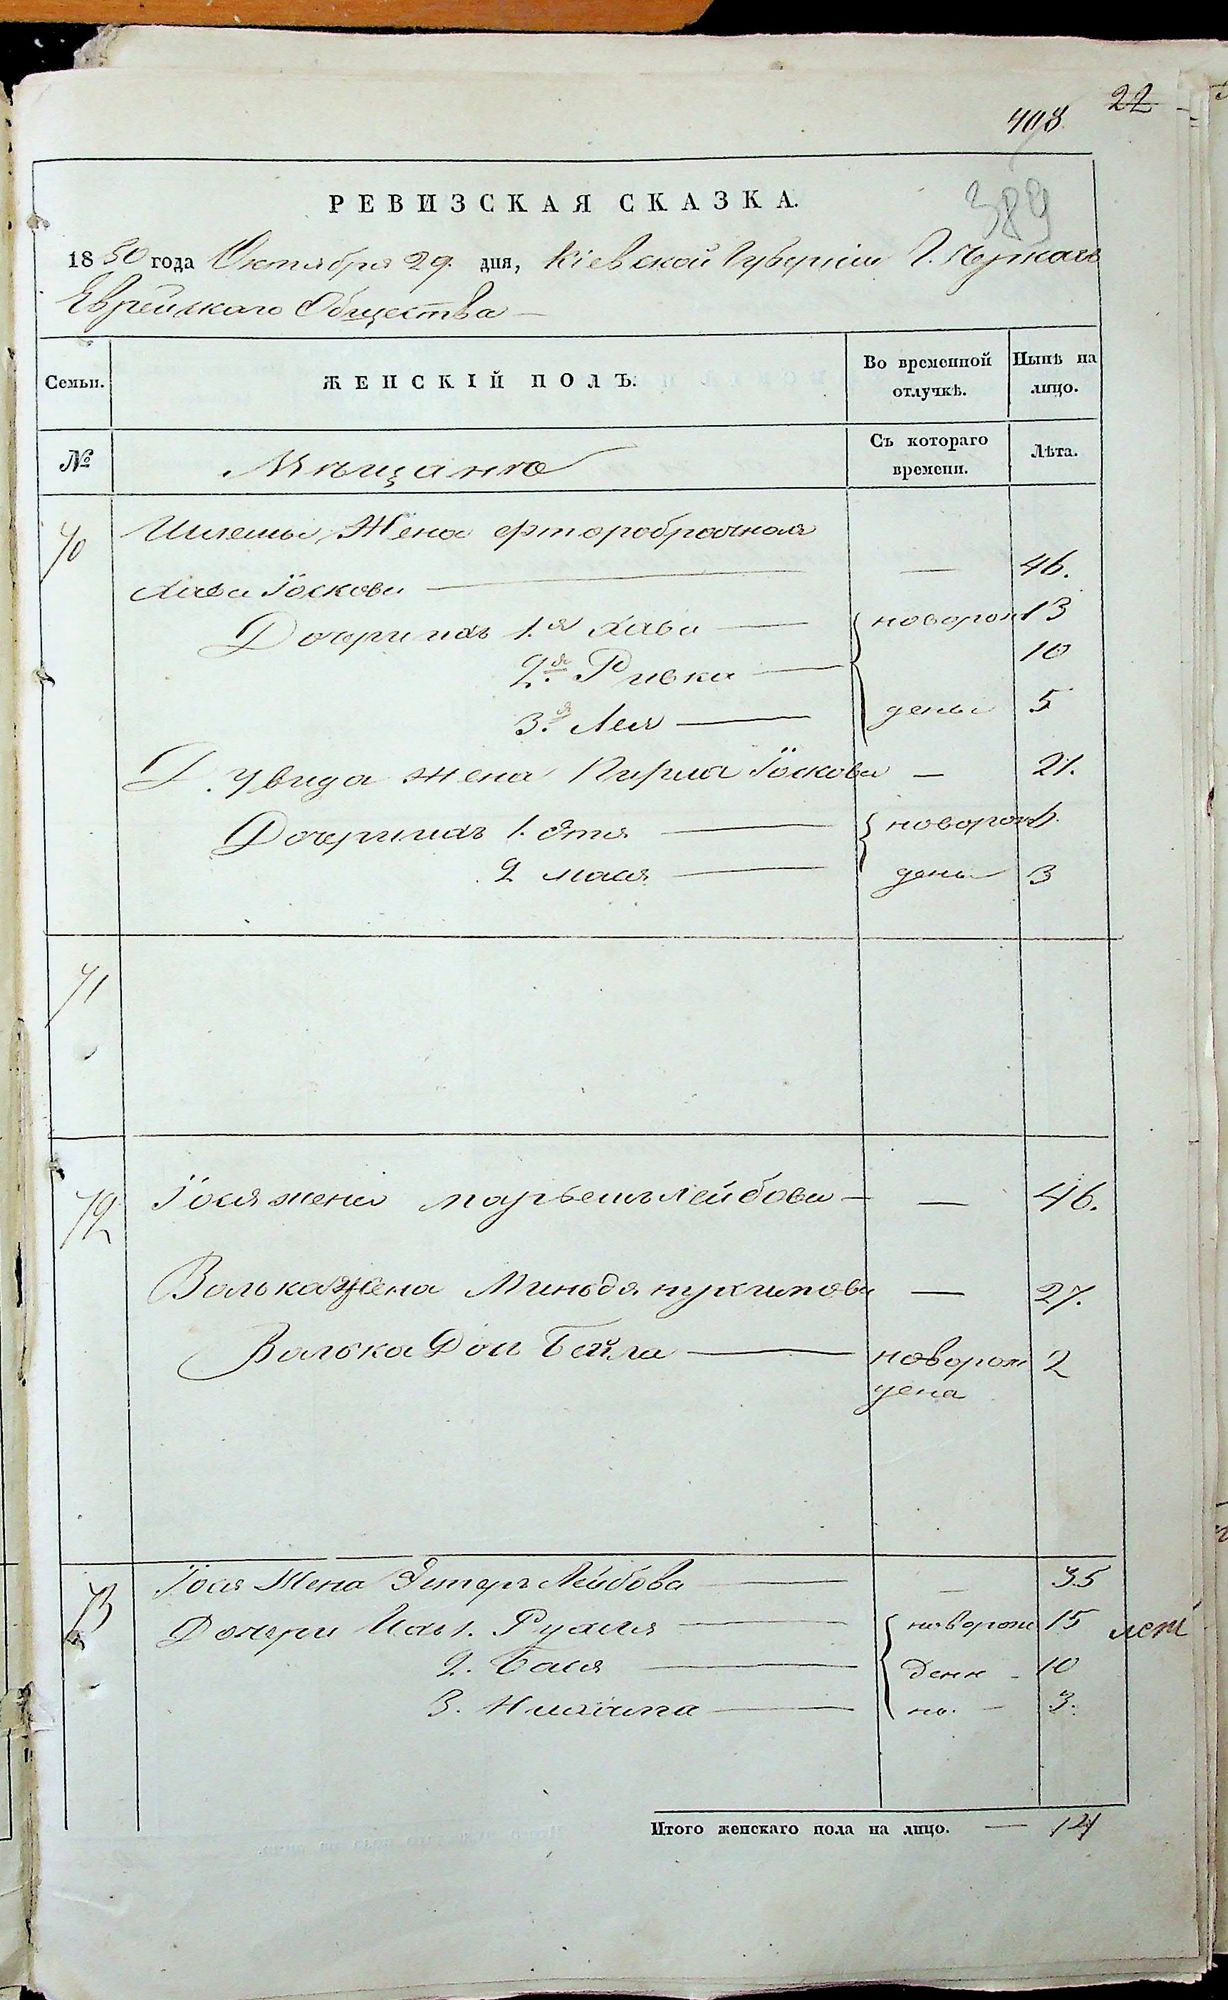 22
408
389
РЕВИЗСКАЯ СКАЗКА.
1850 года Октября 29. дня, Кіевской Губерніи Г. Черкасъ
Еврейскаго Общества
Семьи. ЖЕНСКІЙ ПОЛЪ. Во временной отлучкѣ. Нынѣ на лицо.
№ Мѣщане Съ котораго времени. Лѣта.
70 Шлемы Жена фторобрачная
Хава Іоскова — 46.
Дочери ихъ 1.я Хава новорож 13
2.я Ривка 10
3.я Лея дены 5
Дувида жена Пирля Іоскова — 21.
Дочери ихъ 1. Этя новорож
2 Мася дены 3
71
72 Іося жена Лейбова — 46.
Волька жена Миндя — 27.
Волька Доч Бейла новорож 2
дена
73 Іося Жена Эстеръ Лейбова — 35
Дочери Ихъ 1. Рухля новорож 15 лет
2. Бася денн 10
3. ны. 3.
Итого женскаго пола на лицо. — 14